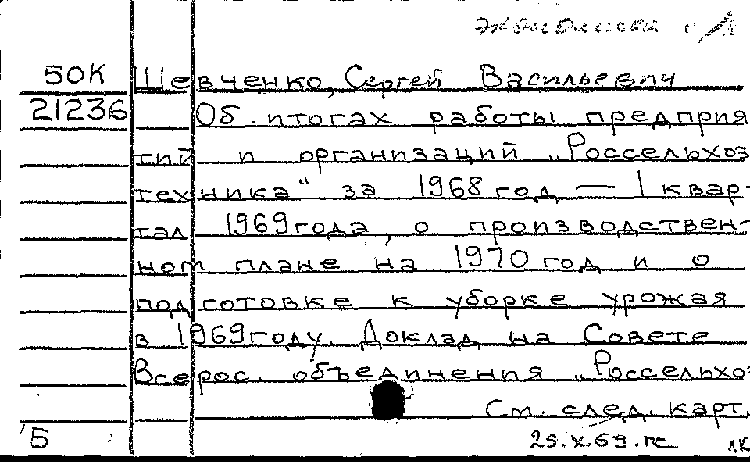 экономика с/х
50К Шевченко, Сергей Васильевич
21236 Об итогах работы предприя
тий и организаций „Россельхоз
техника" за 1968 год — 1 квар-
тал 1969 года, о производствен-
ном плане на 1970 год и о
подготовке к уборке урожая
в 1969 году. Доклад на Совете
Всерос. объединения „Россельхоз
См. след. карт.
Б 25.X.69.